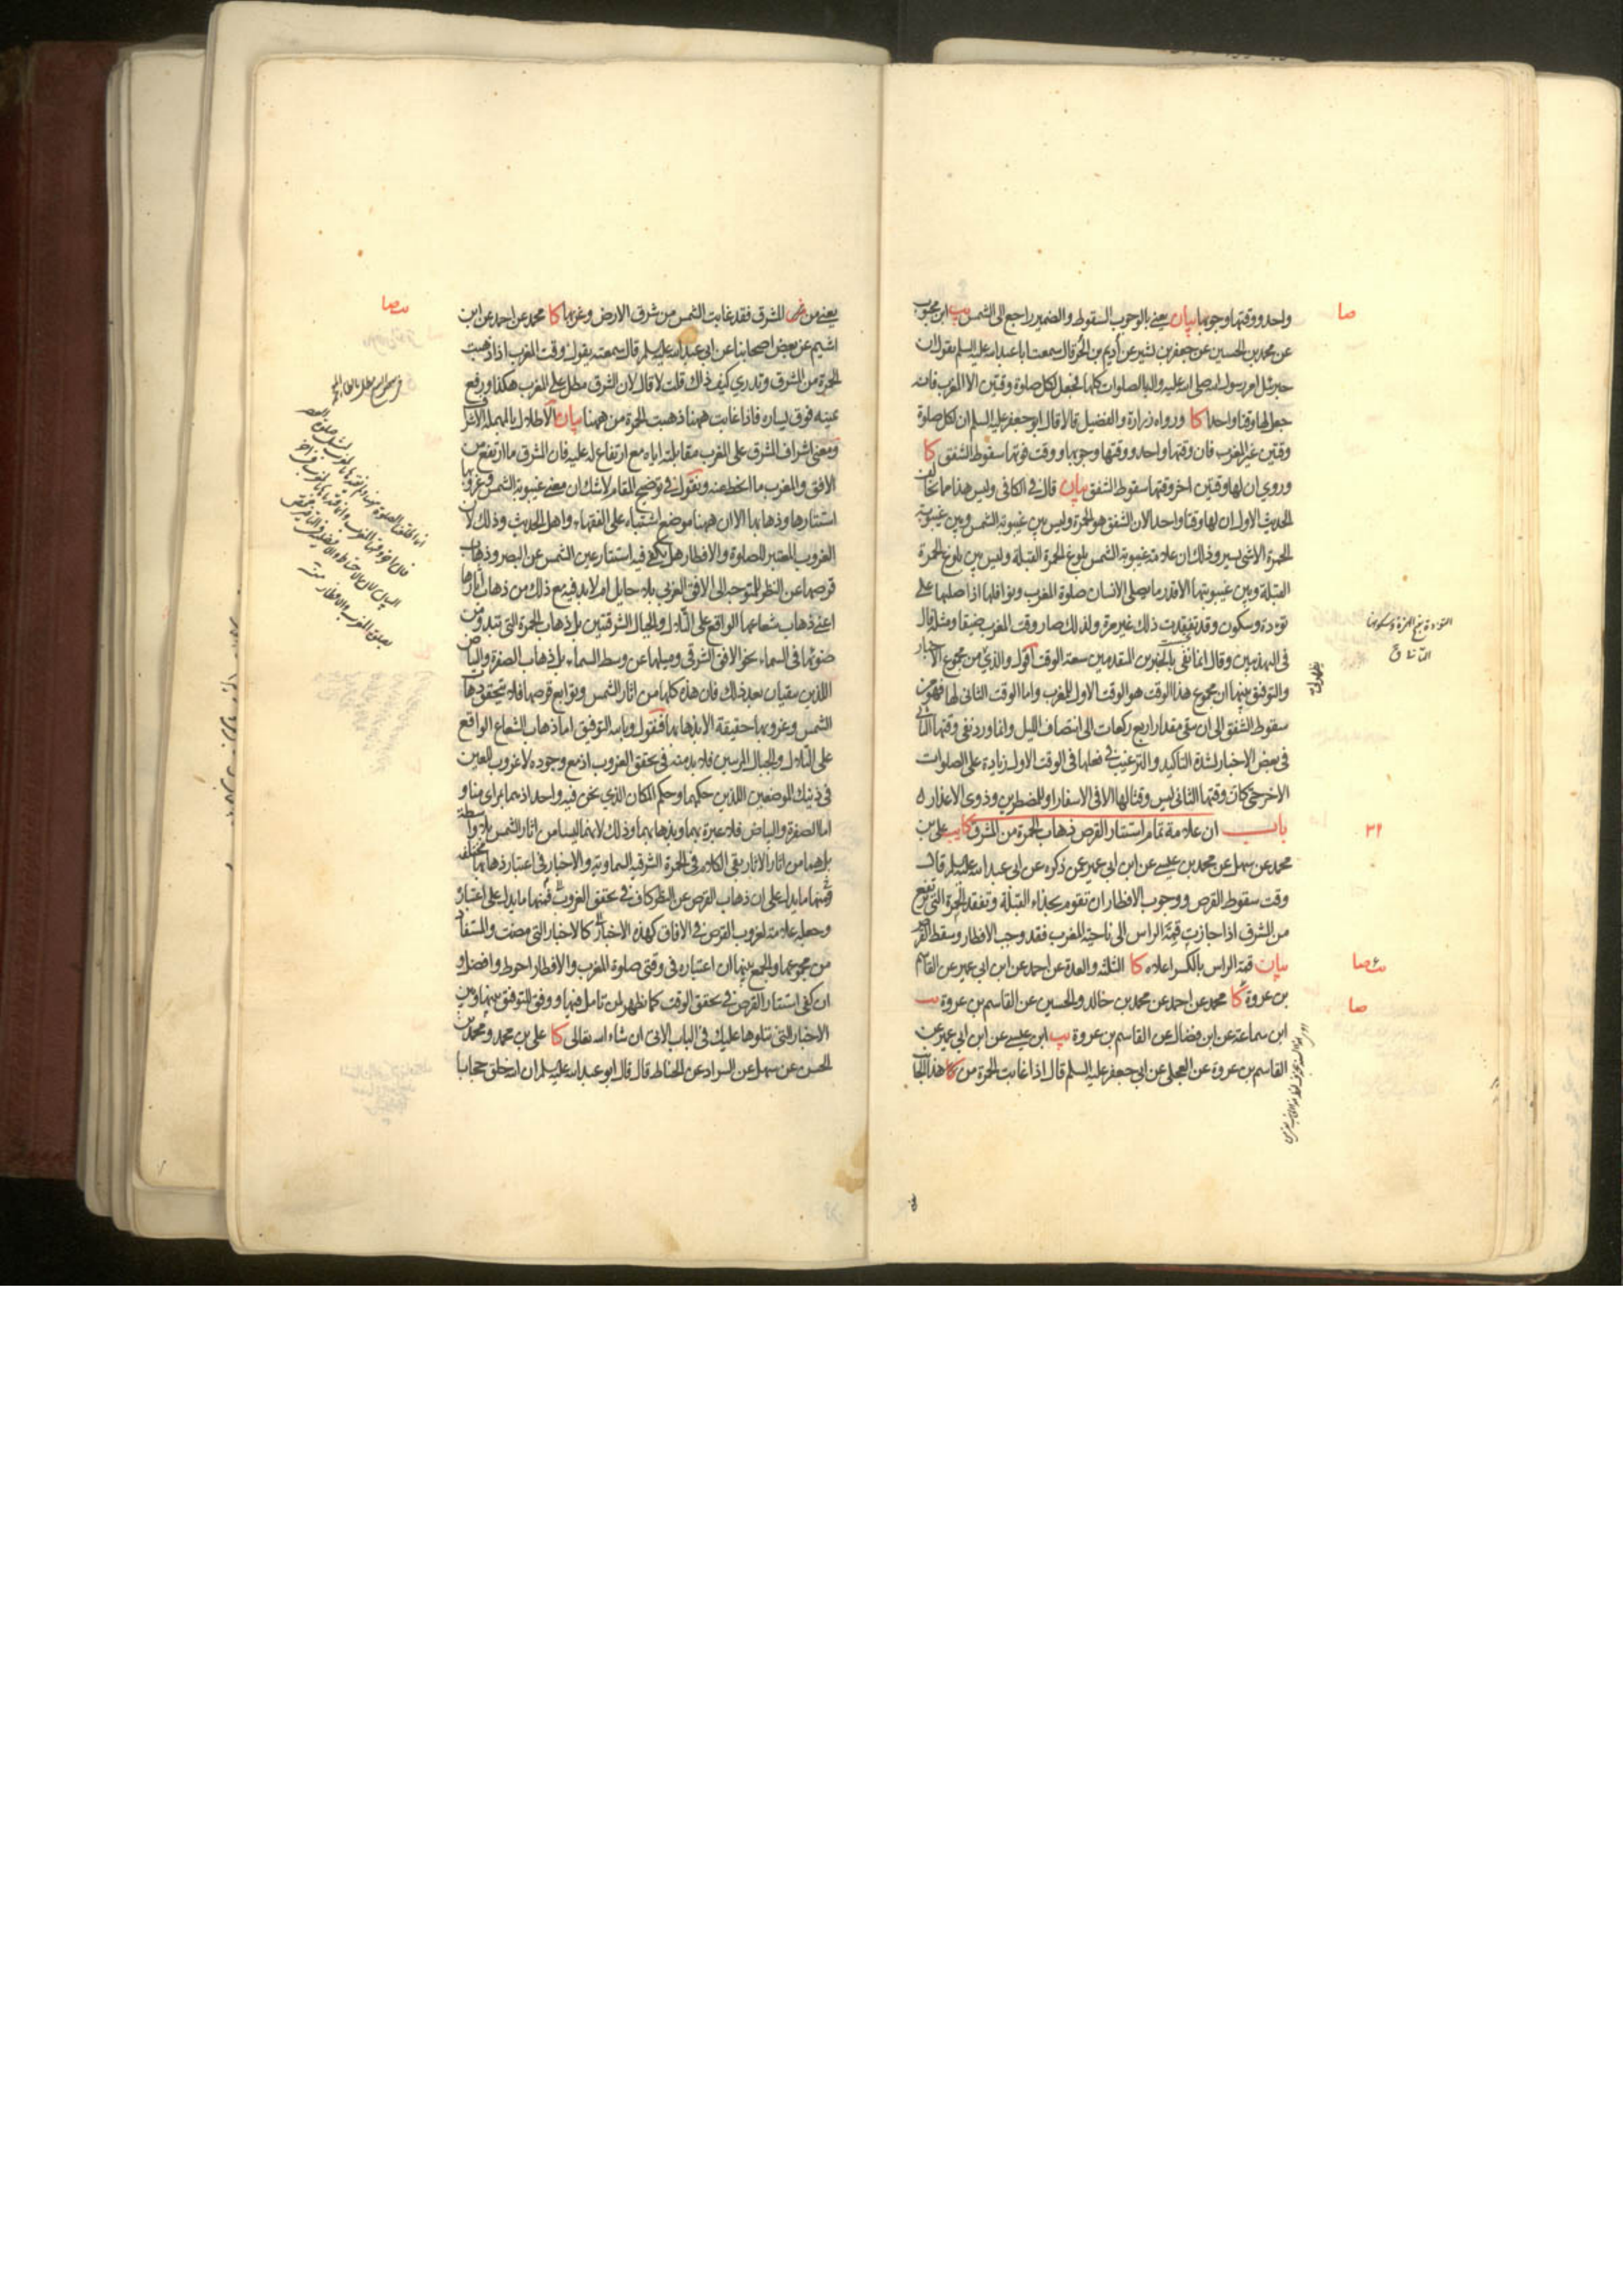 واحد ووقتها وجوبها بيان يعني بالوجوب السقوط والضمير راجع الى الشمس يب ابن محبوب
عن محمد بن الحسين عن جعفر بن بشير عن أديم بن الحر قال سمعت ابا عبد الله عليه السلم يقول ان
جبرئيل امر رسول الله صلى الله عليه واله بالصلوات كلها فجعل لكل صلوة وقتين الا المغرب فانه
جعل لها وقتا واحدا كا ورواه زرارة والفضيل قالا قال ابو جعفر عليه السلم ان لكل صلوة
وقتين غير المغرب فان وقتها واحد ووقتها وجوبها ووقت فوتها سقوط الشفق كا
وروي ان لها وقتين اخر وقتها سقوط الشفق بيان قال في الكافي وليس هذا مما يخالف
الحديث الاول ان لها وقتا واحدا لان الشفق هو الحمرة وليس بين غيبوبة الشمس وبين غيبوبة
الحمرة الا شيء يسير وذلك ان علامة غيبوبة الشمس بلوغ الحمرة القبلة وليس بين بلوغ الحمرة
القبلة وبين غيبوبتها الا قدر ما يصلي الانسان صلوة المغرب ونوافلها اذا صلاها على
تؤدة وسكون وقد تفقدت ذلك غير مرة ولذلك صار وقت المغرب ضيقا ومثله قال
في التهذيبين وقال انما نفى بالخبرين المتقدمين سعة الوقت اقول والذي من مجموع الاخبار
والتوفيق بينها ان مجموع هذا الوقت هو الوقت الاول للمغرب واما الوقت الثاني لها فهو من
سقوط الشفق الى ان يبقى مقدار اربع ركعات الى انتصاف الليل وانما ورد نفي وقتها الثاني
في بعض الاخبار لشدة التاكيد والترغيب في فعلها في الوقت الاول زيادة على الصلوات
الاخر حتى كان وقتها الثاني ليس وقتا لها الا في الاسفار او للمضطرين وذوي الاعذار
باب ان علامة تمام استتار القرص ذهاب الحمرة من المشرق كا يب علي بن
محمد عن سهل عن محمد بن عيسى عن ابن ابي عمير عمن ذكره عن ابي عبد الله عليه السلم قال
وقت سقوط القرص ووجوب الافطار ان تقوم بحذاء القبلة وتفقد الحمرة التي ترتفع
من المشرق اذا جازت قمة الراس الى ناحية المغرب فقد وجب الافطار وسقط القرص
بيان قمة الراس بالكسر اعلاه كا الثلثة والعدة عن احمد عن ابن ابي عمير عن القاسم
بن عروة كا محمد عن احمد عن محمد بن خالد والحسين عن القاسم بن عروة يب
ابن سماعة عن ابن فضال عن القاسم بن عروة يب ابن عيسى عن ابن ابي عمير عن
القاسم بن عروة عن العجلي عن ابي جعفر عليه السلم قال اذا غابت الحمرة من كا هذا الجانب
صا
٢١
صا
يعني من ش المشرق فقد غابت الشمس من شرق الارض وغربها كا محمد عن احمد عن ابن
اشيم عن بعض اصحابنا عن ابي عبد الله عليه السلم قال سمعته يقول وقت المغرب اذا ذهبت
الحمرة من المشرق وتدري كيف ذاك قلت لا قال لان المشرق مطل على المغرب هكذا ورفع
يمينه فوق يساره فاذا غابت ههنا ذهبت الحمرة من ههنا بيان الاطلال بالمهملة الاشراف
ومعنى اشراف المشرق على المغرب مقابلته اياه مع ارتفاع له عليه فان المشرق ما ارتفع من
الافق والمغرب ما انحط عنه ونقول في توضيح المقام لا شك ان معنى غيبوبة الشمس وغروبها
استتارها وذهابها الا ان ههنا موضع اشتباه على الفقهاء واهل الحديث وذلك لان
الغروب المعتبر للصلوة والافطار هل يكفي فيه استتار عين الشمس عن البصر وذهاب
قرصها عن النظر للمتوجه الى الافق الغربي بلا حايل ام لابد فيه مع ذلك من ذهاب اثارها
اعني ذهاب شعاعها الواقع على التلال والجبال الشرقيتين بل ذهاب الحمرة التي تبدو من
ضوئها في السماء نحو الافق الشرقي وميلها عن وسط السماء بل ذهاب الصفرة والبياض
اللذين يبقيان بعد ذلك فان هذه كلها من اثار الشمس وتوابع قرصها فلا يتحقق ذهاب
الشمس وغروبها حقيقة الا بذهابها فنقول وبالله التوفيق اما ذهاب الشعاع الواقع
على التلال والجبال المرئيين فلا بد منه في تحقق الغروب اذ مع وجوده لا غروب للعين
في ذينك الموضعين اللذين حكمهما وحكم المكان الذي نحن فيه واحد اذ هما بمراى منا و
اما الصفرة والبياض فلا عبرة بهما وبذهابهما وذلك لانهما ليسا من اثار الشمس بلا واسطة
بل هما من اثار الاثار بقي الكلام في الحمرة الشرقية السماوية والاخبار في اعتبار ذهابها مختلفة
فمنها ما يدل على ان ذهاب القرص عن النظر كاف في تحقق الغروب ومنها ما يدل على اعتباره
وجعله علامة لغروب القرص في الافاق كهذه الاخبار كالاخبار التي مضت والمستفاد
من مجموعها والجمع بينها ان اعتباره في وقتي صلوة المغرب والافطار احوط وافضل و
ان كفى استتار القرص في تحقق الوقت كما يظهر لمن تامل فيها ووفق للتوفيق بينها وبين
الاخبار التي نتلوها عليك في الباب الاتي ان شاء الله تعالى كا علي بن محمد ومحمد بن
الحسن عن سهل عن السراد عن الحناط قال قال ابو عبد الله عليه السلم ان الله خلق حجابا